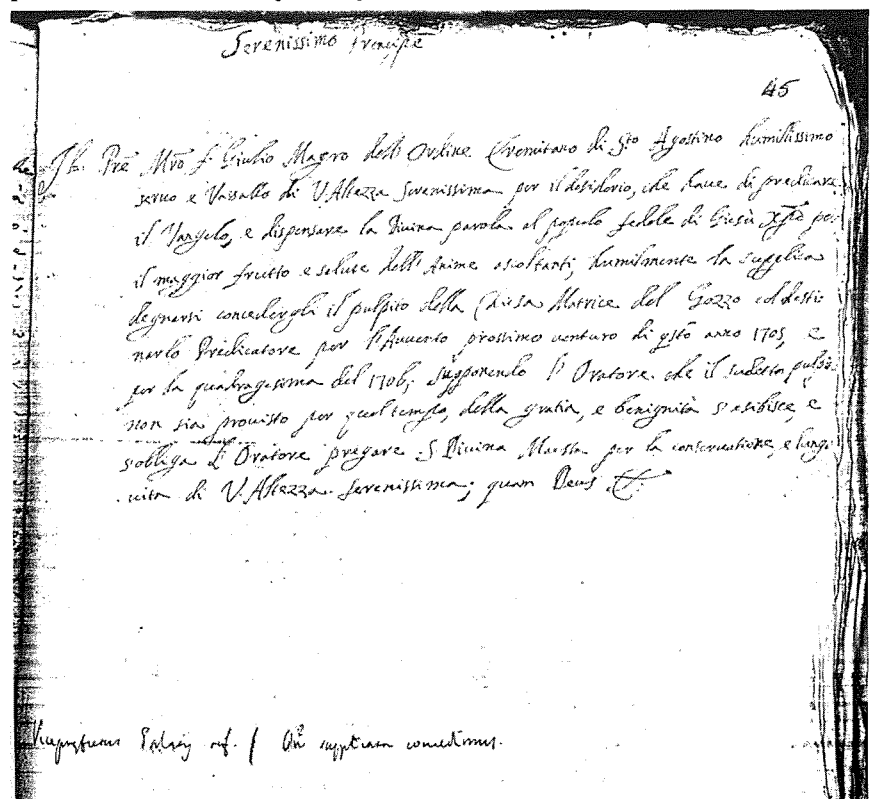 Serenissimo Prencipe
45
Il Pre Mro f. Giulio Magro dell' Ordine Eremitano di Sto Agostino humilissimo
seruo e Vassallo di V. Altezza Serenissima per il desiderio, che haue di predicare
il Vangelo, e dispensare la Diuina parola al popolo fedele di Giesù Xpto per
il maggior frutto e salute dell' Anime ascoltanti, humilmente la supplica
degnarsi concedergli il pulpito della Chiesa Matrice del Gozzo col desti
narlo Predicatore per l'Auuento prossimo uenturo di qsto anno 1705, e
per la quadragesima del 1706, supponendo l' Oratore che il sudetto pulpi
non sia prouisto per quel tempo, della gratia, e benignità s'esibisce, e
s'obliga l' Oratore pregare S. Diuina Maestà per la conseruatione, e lunga
uita di V. Altezza Serenissima; quam Deus &
ref. / supplicata concedimus.